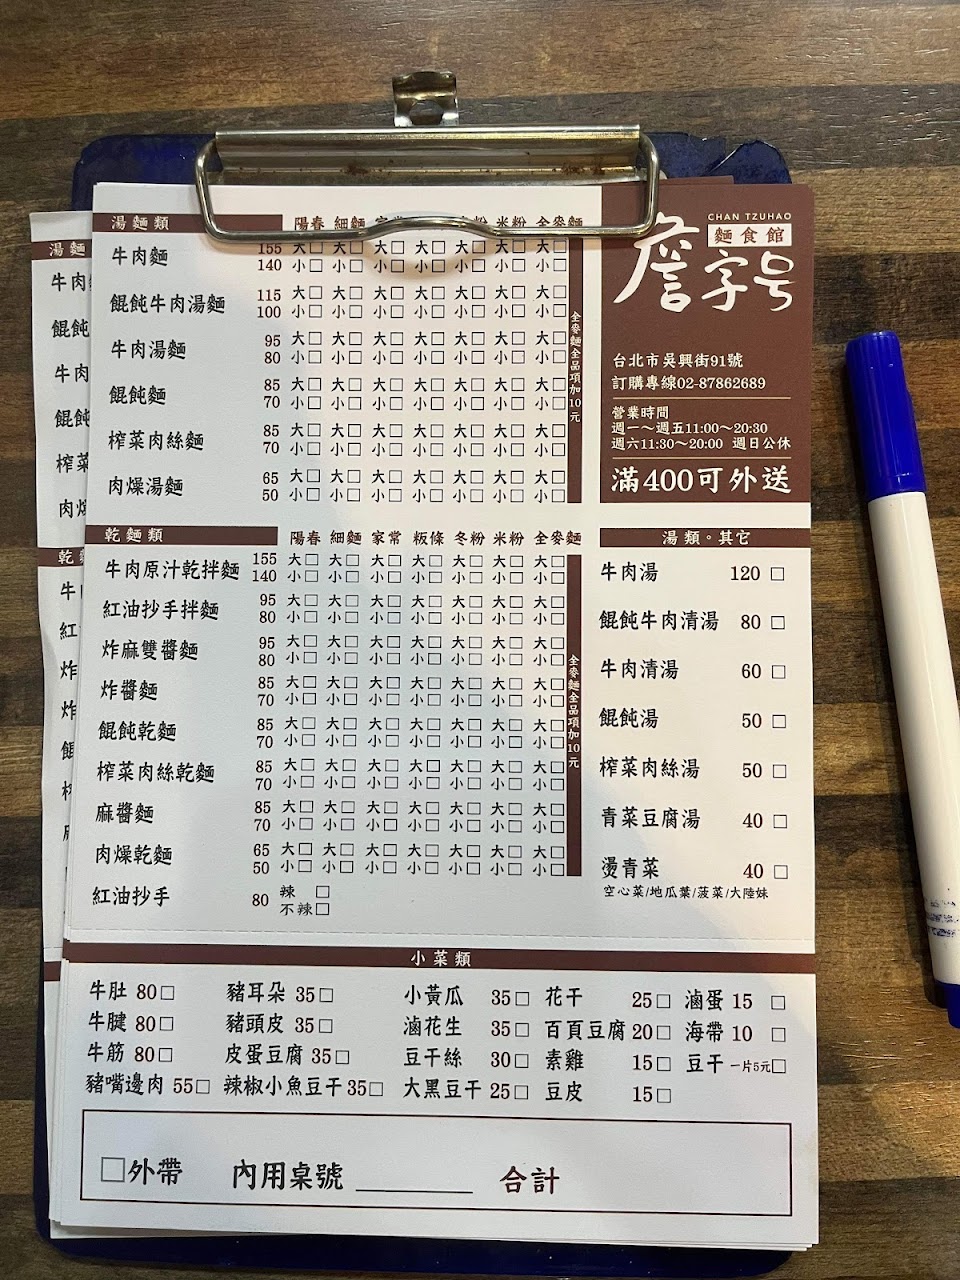 湯麵類 陽春 細麵 家常 粉 米粉 全麥麵
牛肉麵 155 大□ 大□ 大□ 大□ 大□ 大□ 大□
140 小□ 小□ 小□ 小□ 小□ 小□ 小□
餛飩牛肉湯麵 115 大□ 大□ 大□ 大□ 大□ 大□ 大□
100 小□ 小□ 小□ 小□ 小□ 小□ 小□
牛肉湯麵 95 大□ 大□ 大□ 大□ 大□ 大□ 大□
80 小□ 小□ 小□ 小□ 小□ 小□ 小□
餛飩麵 85 大□ 大□ 大□ 大□ 大□ 大□ 大□
70 小□ 小□ 小□ 小□ 小□ 小□ 小□
榨菜肉絲麵 85 大□ 大□ 大□ 大□ 大□ 大□ 大□
70 小□ 小□ 小□ 小□ 小□ 小□ 小□
肉燥湯麵 65 大□ 大□ 大□ 大□ 大□ 大□ 大□
50 小□ 小□ 小□ 小□ 小□ 小□ 小□
全麥麵全品項加10元
CHAN TZUHAO
麵食館
詹字号
台北市吳興街91號
訂購專線02-87862689
營業時間
週一～週五11:00～20:30
週六11:30～20:00 週日公休
滿400可外送
乾麵類 陽春 細麵 家常 粄條 冬粉 米粉 全麥麵
牛肉原汁乾拌麵 155 大□ 大□ 大□ 大□ 大□ 大□ 大□
140 小□ 小□ 小□ 小□ 小□ 小□ 小□
紅油抄手拌麵 95 大□ 大□ 大□ 大□ 大□ 大□ 大□
80 小□ 小□ 小□ 小□ 小□ 小□ 小□
炸麻雙醬麵 95 大□ 大□ 大□ 大□ 大□ 大□ 大□
80 小□ 小□ 小□ 小□ 小□ 小□ 小□
炸醬麵 85 大□ 大□ 大□ 大□ 大□ 大□ 大□
70 小□ 小□ 小□ 小□ 小□ 小□ 小□
餛飩乾麵 85 大□ 大□ 大□ 大□ 大□ 大□ 大□
70 小□ 小□ 小□ 小□ 小□ 小□ 小□
榨菜肉絲乾麵 85 大□ 大□ 大□ 大□ 大□ 大□ 大□
70 小□ 小□ 小□ 小□ 小□ 小□ 小□
麻醬麵 85 大□ 大□ 大□ 大□ 大□ 大□ 大□
70 小□ 小□ 小□ 小□ 小□ 小□ 小□
肉燥乾麵 65 大□ 大□ 大□ 大□ 大□ 大□ 大□
50 小□ 小□ 小□ 小□ 小□ 小□ 小□
紅油抄手 80 辣 □
不辣□
全麥麵全品項加10元
湯類。其它
牛肉湯 120 □
餛飩牛肉清湯 80 □
牛肉清湯 60 □
餛飩湯 50 □
榨菜肉絲湯 50 □
青菜豆腐湯 40 □
燙青菜 40 □
空心菜/地瓜葉/菠菜/大陸妹
小菜類
牛肚 80□ 豬耳朵 35□ 小黃瓜 35□ 花干 25□ 滷蛋 15 □
牛腱 80□ 豬頭皮 35□ 滷花生 35□ 百頁豆腐 20□ 海帶 10 □
牛筋 80□ 皮蛋豆腐 35□ 豆干絲 30□ 素雞 15□ 豆干 一片5元□
豬嘴邊肉 55□ 辣椒小魚豆干 35□ 大黑豆干 25□ 豆皮 15□
□外帶 內用桌號 ______ 合計
湯麵
牛肉
餛飩
牛肉
餛飩
榨菜
肉燥
乾
牛
紅
炸
炸
餛